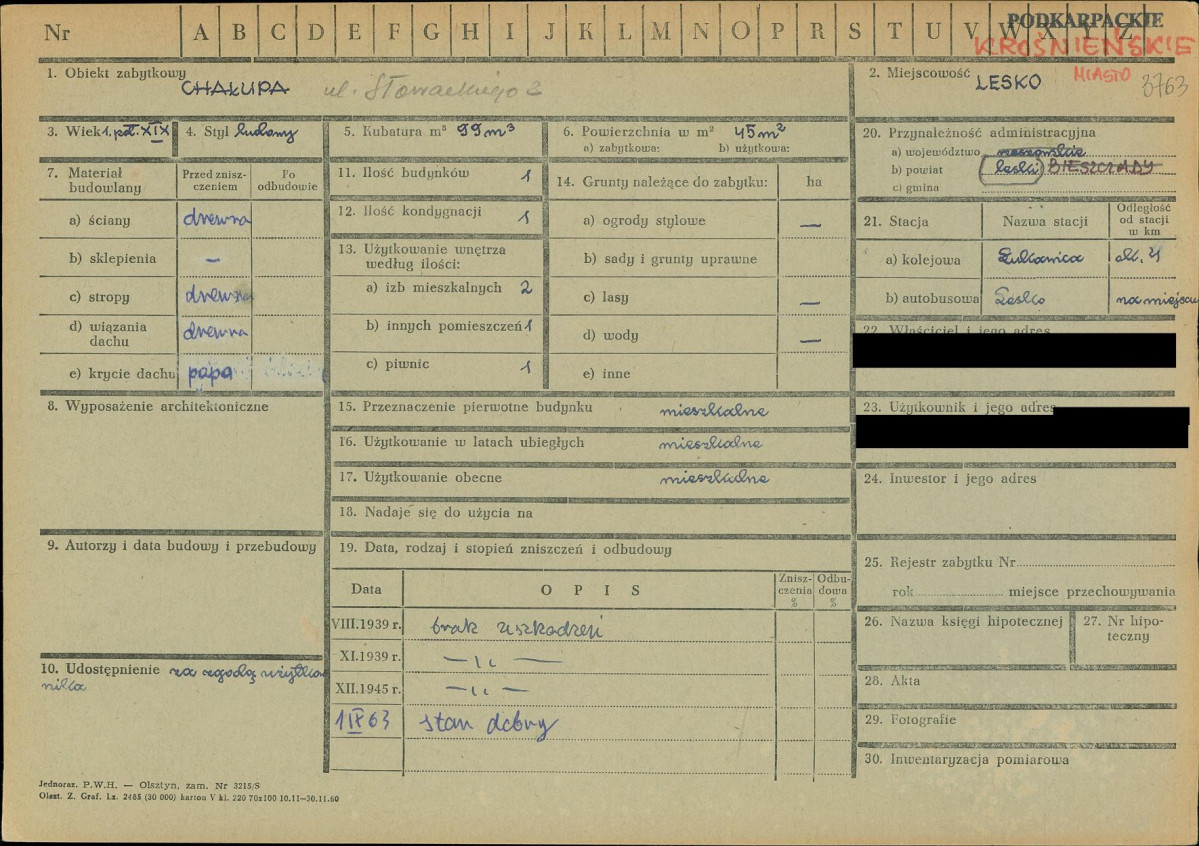 Nr A B C D E F G H I J K L M N O P R S T U V W X Y Z
PODKARPACKIE
KROŚNIEŃSKIE
MIASTO
3763
1. Obiekt zabytkowy
CHAŁUPA ul. Słowackiego 3
2. Miejscowość LESKO
3. Wiek 1. poł. XIX
4. Styl ludowy
5. Kubatura m³ 99 m³
6. Powierzchnia w m² 45 m²
a) zabytkowa: b) użytkowa:
7. Materiał budowlany
Przed znisz-
czeniem
Po
odbudowie
a) ściany drewna
b) sklepienia —
c) stropy drewna
d) wiązania
dachu drewna
e) krycie dachu papa
8. Wyposażenie architektoniczne
9. Autorzy i data budowy i przebudowy
10. Udostępnienie za zgodą użytko
nika
11. Ilość budynków 1
12. Ilość kondygnacji 1
13. Użytkowanie wnętrza
według ilości:
a) izb mieszkalnych 2
b) innych pomieszczeń 1
c) piwnic 1
14. Grunty należące do zabytku: ha
a) ogrody stylowe —
b) sady i grunty uprawne
c) lasy —
d) wody —
e) inne
15. Przeznaczenie pierwotne budynku mieszkalne
16. Użytkowanie w latach ubiegłych mieszkalne
17. Użytkowanie obecne mieszkalne
18. Nadaje się do użycia na
19. Data, rodzaj i stopień zniszczeń i odbudowy
Data OPIS
Znisz-
czenia
%
Odbu-
dowa
%
VIII.1939 r. brak uszkodzeń
XI.1939 r. — ıı —
XII.1945 r. — ıı —
1 IX 63 stan dobry
20. Przynależność administracyjna
a) województwo rzeszowskie
b) powiat leski BIESZCZADY
c) gmina
21. Stacja Nazwa stacji
Odległość
od stacji
w km
a) kolejowa Łukawica ok. 21
b) autobusowa Lesko na miejscu
22. Właściciel i jego adres
23. Użytkownik i jego adres
24. Inwestor i jego adres
25. Rejestr zabytku Nr
rok miejsce przechowywania
26. Nazwa księgi hipotecznej
27. Nr hipo-
teczny
28. Akta
29. Fotografie
30. Inwentaryzacja pomiarowa
Jednoraz. P.W.H. — Olsztyn, zam. Nr 3215/S
Olszt. Z. Graf. Lz. 2485 (30 000) karton V kl. 220 70x100 10.11—30.11.60